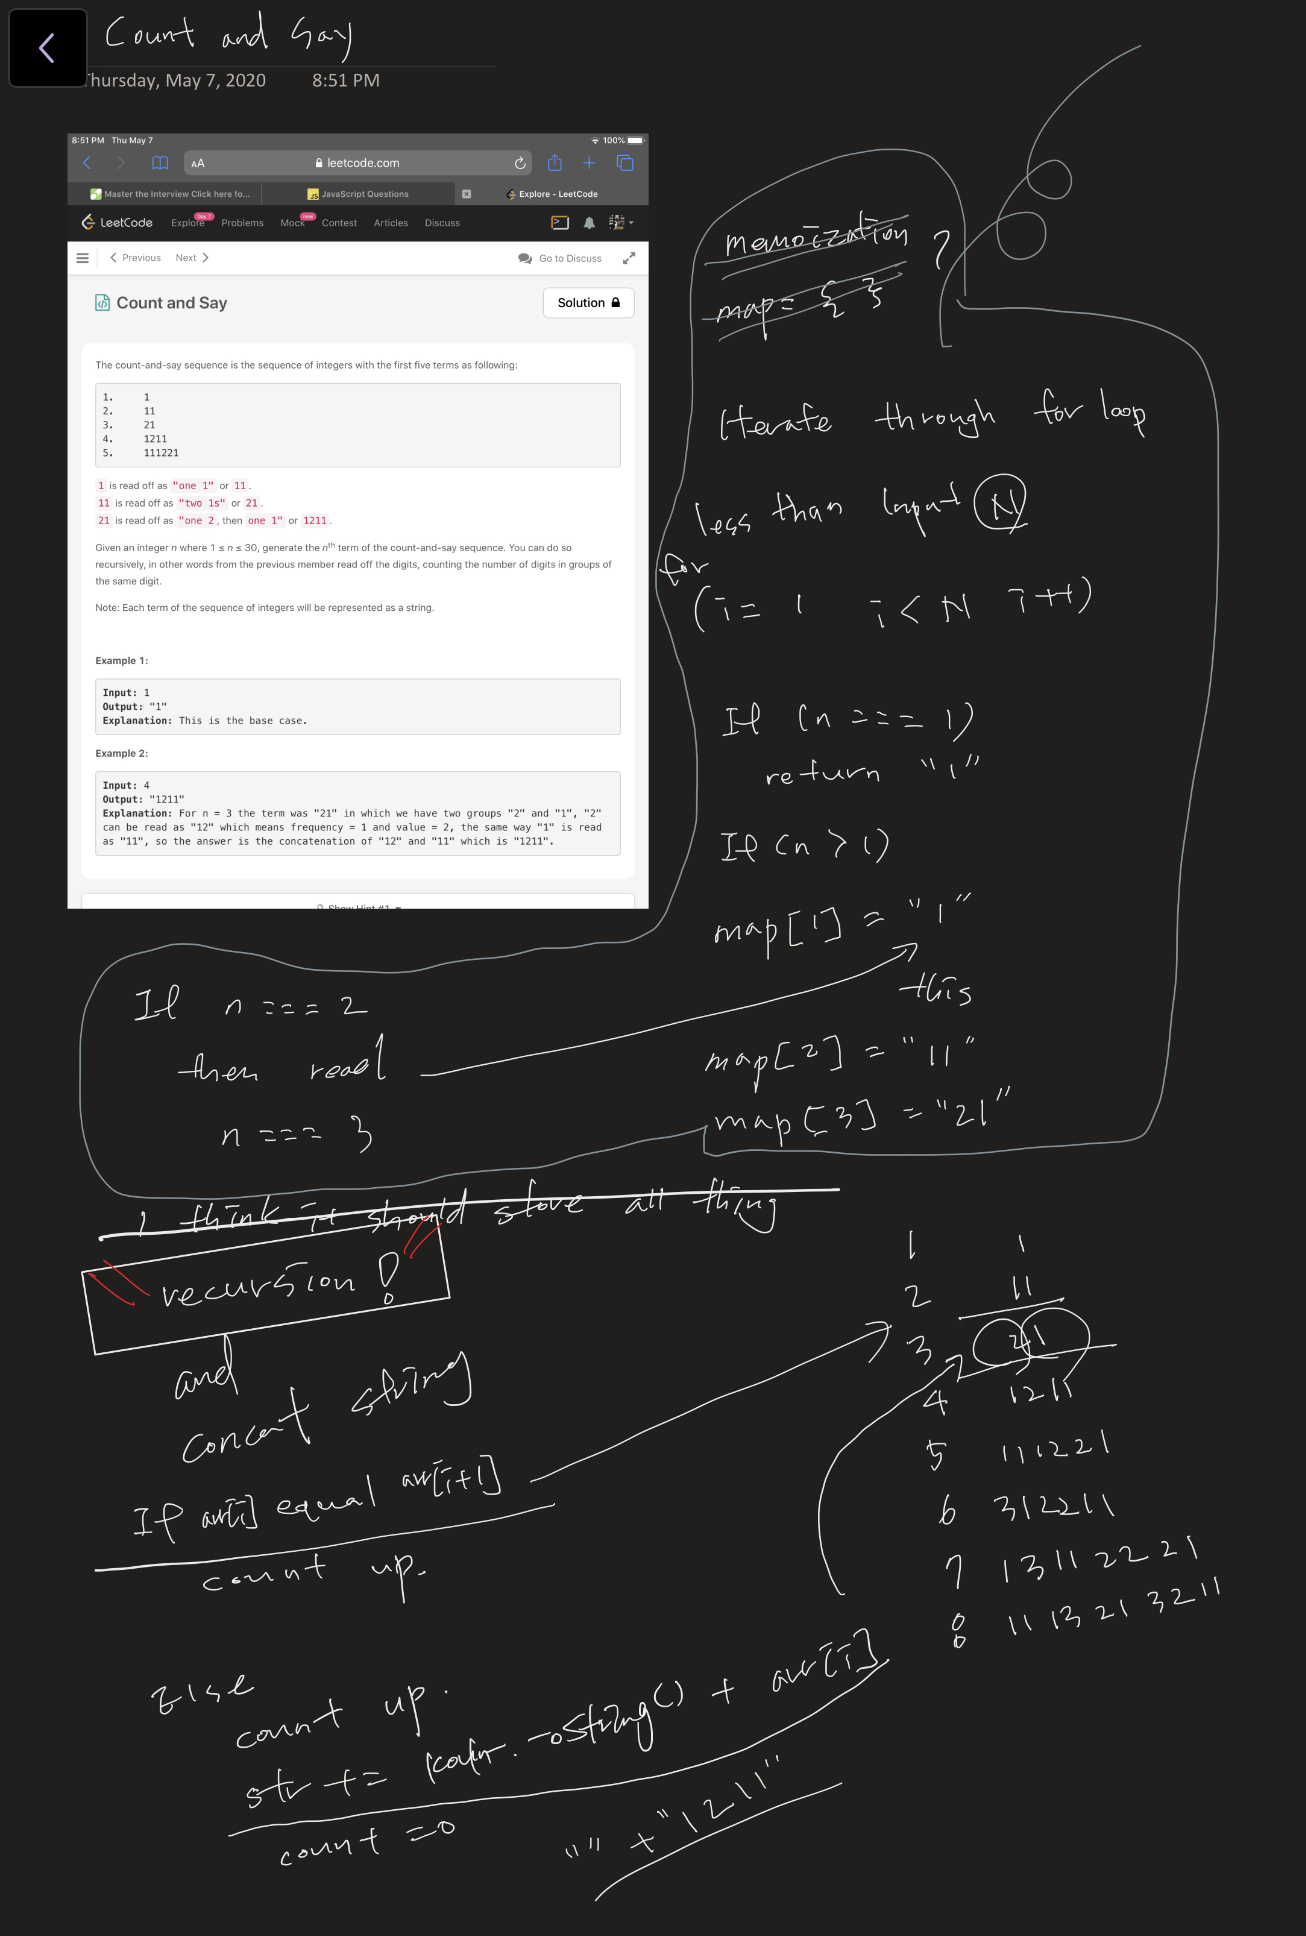 Count and Say
Thursday, May 7, 2020 8:51 PM
8:51 PM Thu May 7 100%
AA leetcode.com
Master the Interview Click here fo... JavaScript Questions Explore - LeetCode
LeetCode Explore Day 7 Problems Mock new Contest Articles Discuss
Previous Next Go to Discuss
Count and Say Solution
The count-and-say sequence is the sequence of integers with the first five terms as following:
1. 1
2. 11
3. 21
4. 1211
5. 111221
1 is read off as "one 1" or 11.
11 is read off as "two 1s" or 21.
21 is read off as "one 2, then one 1" or 1211.
Given an integer n where 1 ≤ n ≤ 30, generate the nth term of the count-and-say sequence. You can do so
recursively, in other words from the previous member read off the digits, counting the number of digits in groups of
the same digit.
Note: Each term of the sequence of integers will be represented as a string.
Example 1:
Input: 1
Output: "1"
Explanation: This is the base case.
Example 2:
Input: 4
Output: "1211"
Explanation: For n = 3 the term was "21" in which we have two groups "2" and "1", "2"
can be read as "12" which means frequency = 1 and value = 2, the same way "1" is read
as "11", so the answer is the concatenation of "12" and "11" which is "1211".
Show Hint #1
memoization ?
map = { }
Iterate through for loop
less than input N
for
(i = 1 i < N i++)
If (n === 1)
return "1"
If (n > 1)
map[1] = "1"
this
map[2] = "11"
map[3] = "21"
If n === 2
then read
n === 3
I think it should store all thing
recursion !
and
concat string
If arr[i] equal arr[i+1]
count up.
Else
count up.
str += .toString() + arr[i]
count = 0
"" + "1211"
1 1
2 11
3 21
4 1211
5 111221
6 312211
7 13112221
8 1113213211